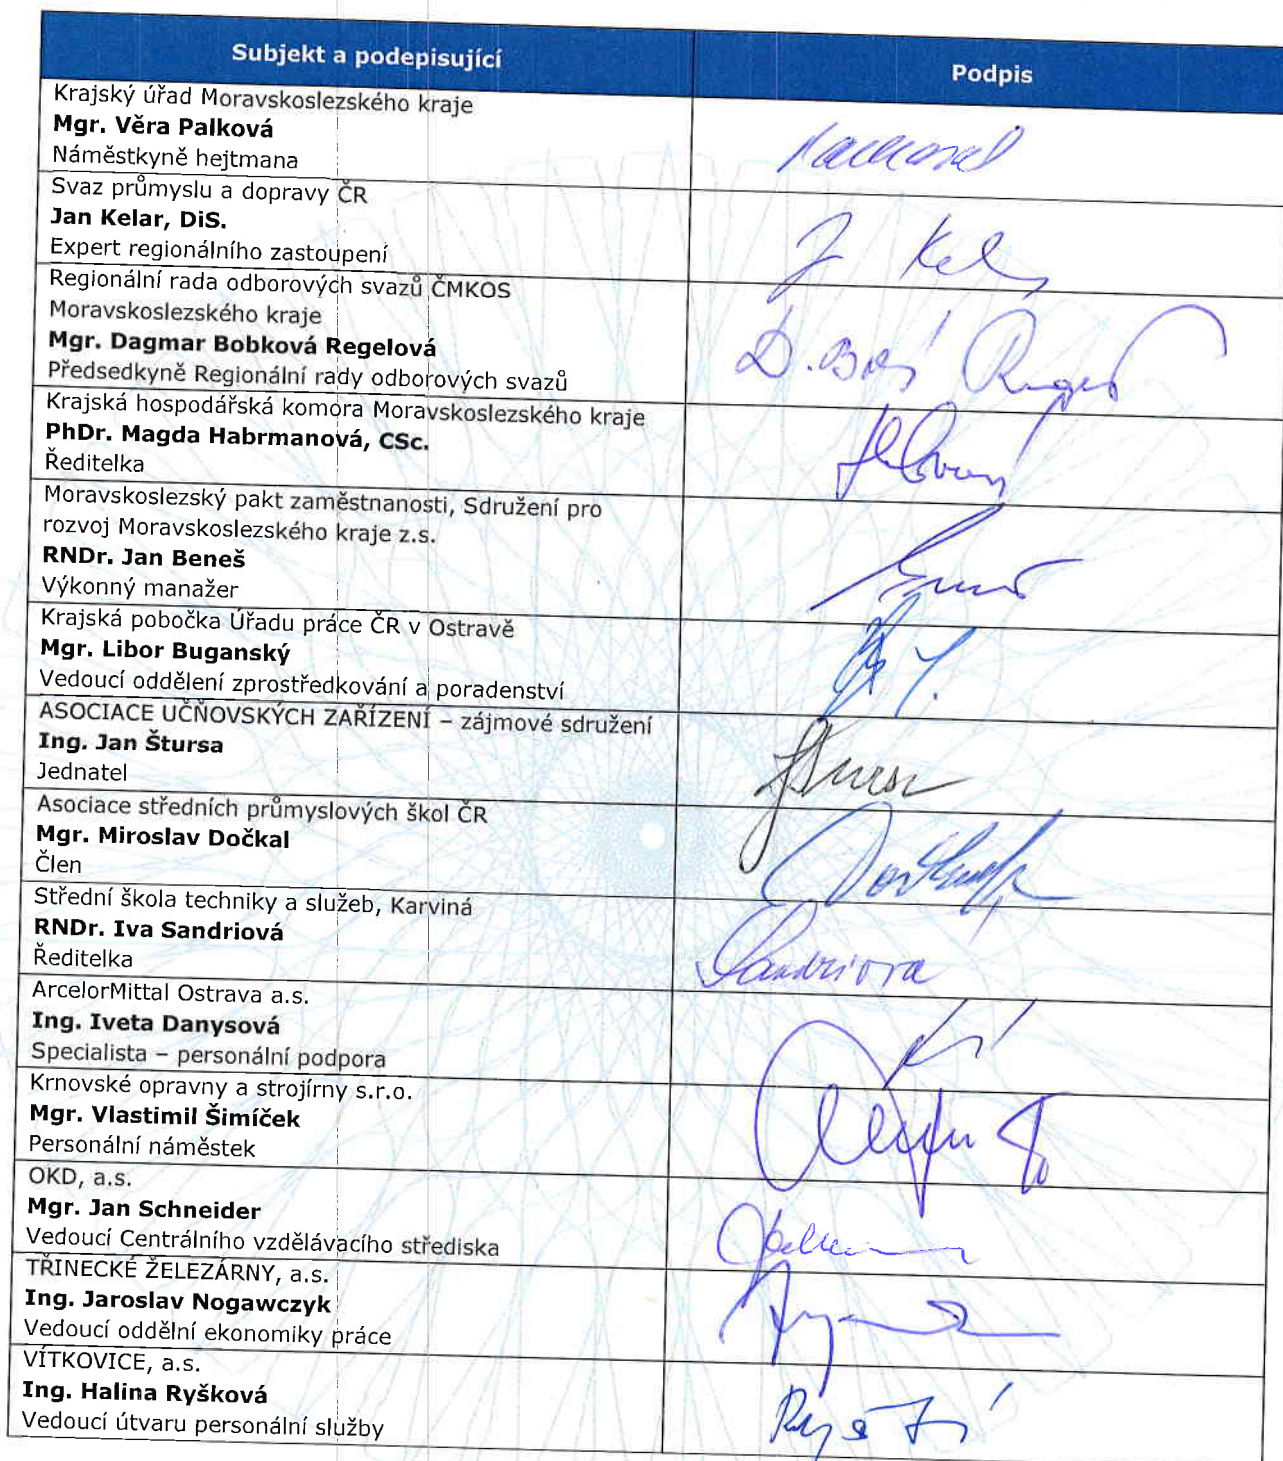 Subjekt a podepisující
Podpis
Krajský úřad Moravskoslezského kraje
Mgr. Věra Palková
Náměstkyně hejtmana
Svaz průmyslu a dopravy ČR
Jan Kelar, DiS.
Expert regionálního zastoupení
J Kel
Regionální rada odborových svazů ČMKOS
Moravskoslezského kraje
Mgr. Dagmar Bobková Regelová
Předsedkyně Regionální rady odborových svazů
Krajská hospodářská komora Moravskoslezského kraje
PhDr. Magda Habrmanová, CSc.
Ředitelka
Moravskoslezský pakt zaměstnanosti, Sdružení pro
rozvoj Moravskoslezského kraje z.s.
RNDr. Jan Beneš
Výkonný manažer
Krajská pobočka Úřadu práce ČR v Ostravě
Mgr. Libor Buganský
Vedoucí oddělení zprostředkování a poradenství
ASOCIACE UČŇOVSKÝCH ZAŘÍZENÍ – zájmové sdružení
Ing. Jan Štursa
Jednatel
Asociace středních průmyslových škol ČR
Mgr. Miroslav Dočkal
Člen
Střední škola techniky a služeb, Karviná
RNDr. Iva Sandriová
Ředitelka
Sandriova
ArcelorMittal Ostrava a.s.
Ing. Iveta Danysová
Specialista – personální podpora
Krnovské opravny a strojírny s.r.o.
Mgr. Vlastimil Šimíček
Personální náměstek
OKD, a.s.
Mgr. Jan Schneider
Vedoucí Centrálního vzdělávacího střediska
TŘINECKÉ ŽELEZÁRNY, a.s.
Ing. Jaroslav Nogawczyk
Vedoucí oddělní ekonomiky práce
VÍTKOVICE, a.s.
Ing. Halina Ryšková
Vedoucí útvaru personální služby